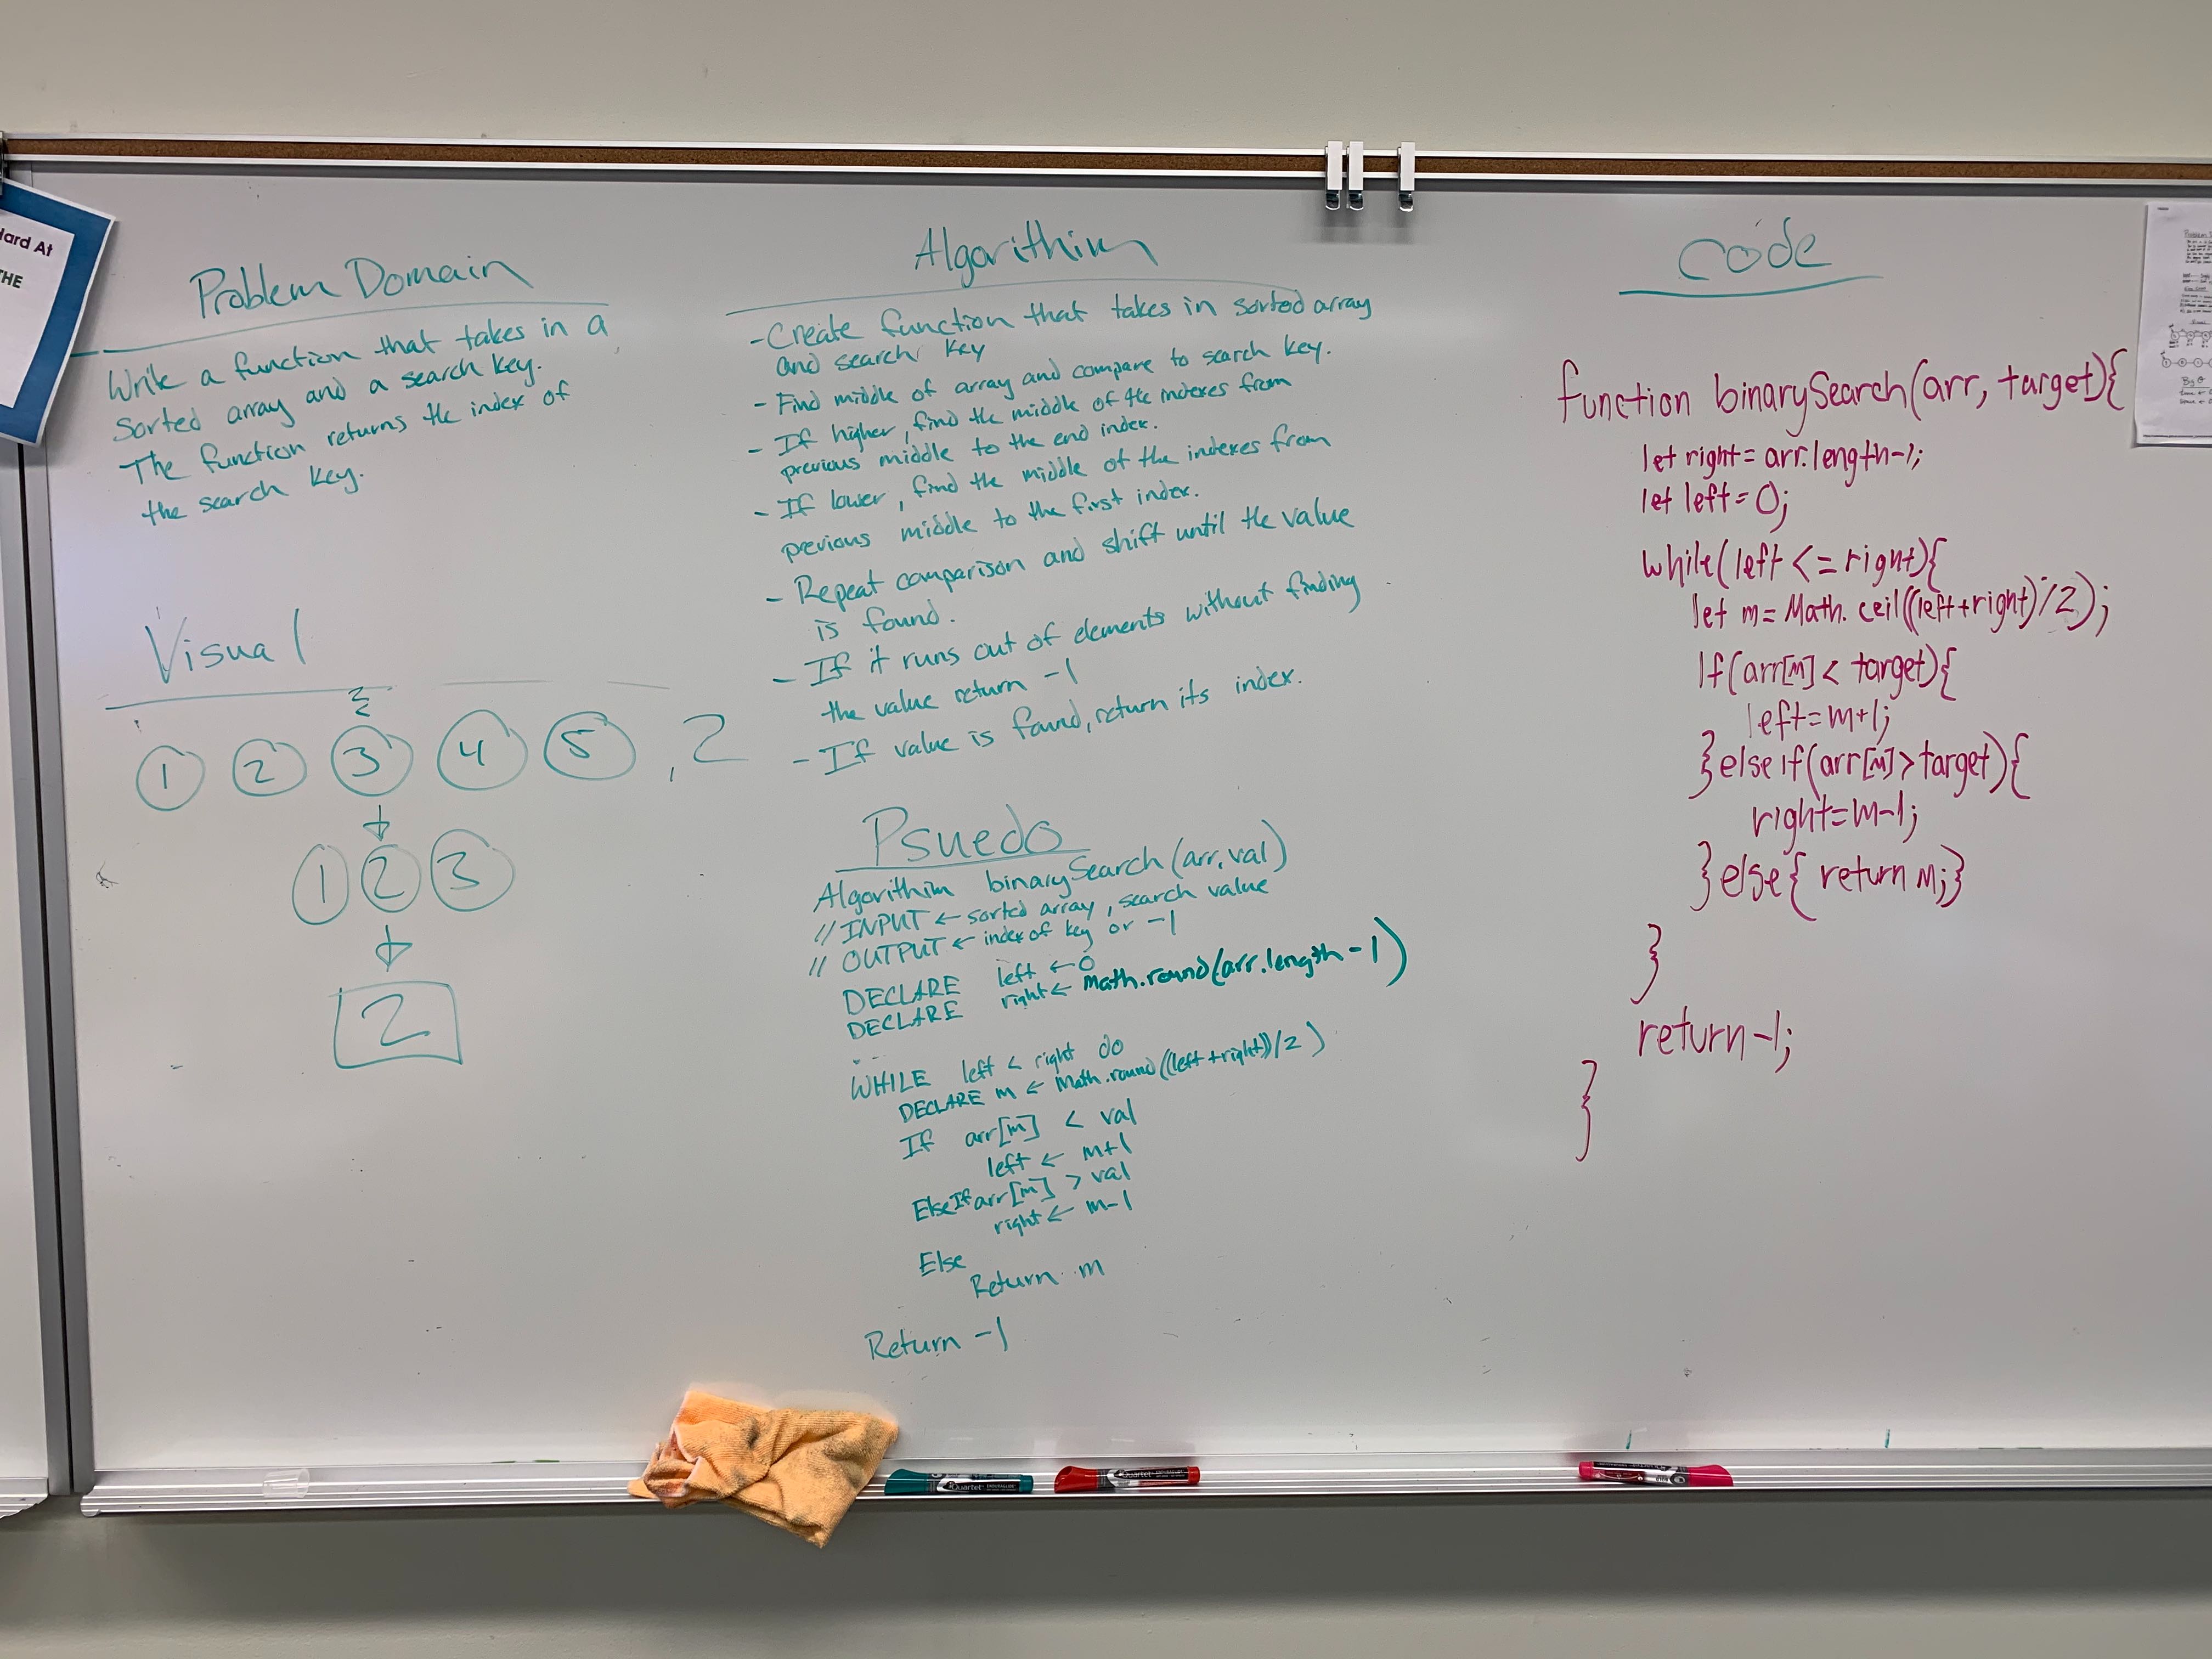 Hard At
THE
Problem Domain
Write a function that takes in a
sorted array and a search key.
The function returns the index of
the search key.
Visual
1 2 3 4 5 , 2
1 2 3
2
Algorithim
- Create function that takes in sorted array
and search key
- Find middle of array and compare to search key.
- If higher, find the middle of the indexes from
previous middle to the end index.
- If lower, find the middle of the indexes from
previous middle to the first index.
- Repeat comparison and shift until the value
is found.
- If it runs out of elements without finding
the value return -1
- If value is found, return its index.
Psuedo
Algorithim binarySearch (arr, val)
// INPUT ← sorted array, search value
// OUTPUT ← index of key or -1
DECLARE left ← 0
DECLARE right ← Math.round(arr.length-1)
WHILE left < right do
DECLARE m ← Math.round((left+right))/2)
If arr[m] < val
left ← m+1
ElseIf arr[m] > val
right ← m-1
Else
Return m
Return -1
code
function binarySearch(arr, target){
let right = arr.length-1;
let left = 0;
while(left <= right){
let m = Math.ceil((left+right)/2);
If(arr[m] < target){
left=m+1;
}else if(arr[m]>target){
right=m-1;
}else{ return m;}
}
return -1;
}
Quartet
Quartet